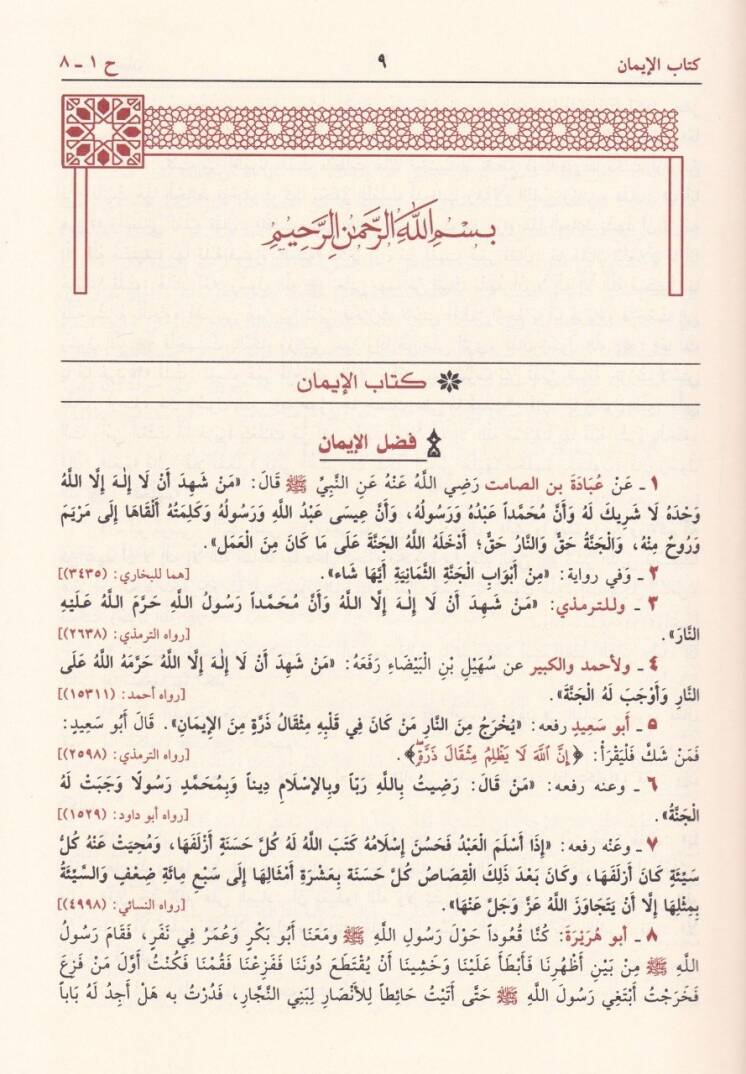 كتاب الإيمان ٩ ح ١ ـ ٨
بسم الله الرحمن الرحيم
كتاب الإيمان
فضل الإيمان
١ ـ عَنْ عُبَادَةَ بن الصامت رَضِيَ اللَّهُ عَنْهُ عَنِ النَّبِيِّ ﷺ قَالَ: «مَنْ شَهِدَ أَنْ لَا إِلٰهَ إِلَّا اللَّهُ
وَحْدَهُ لَا شَرِيكَ لَهُ وَأَنَّ مُحَمَّداً عَبْدُهُ وَرَسُولُهُ، وَأَنَّ عِيسَى عَبْدُ اللَّهِ وَرَسُولُهُ وَكَلِمَتُهُ أَلْقَاهَا إِلَى مَرْيَمَ
وَرُوحٌ مِنْهُ، وَالْجَنَّةُ حَقٌّ وَالنَّارُ حَقٌّ؛ أَدْخَلَهُ اللَّهُ الْجَنَّةَ عَلَى مَا كَانَ مِنَ الْعَمَلِ».
٢ ـ وَفي رواية: «مِنْ أَبْوَابِ الْجَنَّةِ الثَّمَانِيَةِ أَيَّهَا شَاء». [هما للبخاري: (٣٤٣٥)]
٣ ـ وللترمذي: «مَنْ شَهِدَ أَنْ لَا إِلٰهَ إِلَّا اللَّهُ وَأَنَّ مُحَمَّداً رَسُولُ اللَّهِ حَرَّمَ اللَّهُ عَلَيْهِ
النَّارَ». [رواه الترمذي: (٢٦٣٨)]
٤ ـ ولأحمد والكبير عن سُهَيْلِ بْنِ الْبَيْضَاءِ رَفَعَهُ: «مَنْ شَهِدَ أَنْ لَا إِلٰهَ إِلَّا اللَّهُ حَرَّمَهُ اللَّهُ عَلَى
النَّارِ وَأَوْجَبَ لَهُ الْجَنَّةَ». [رواه أحمد: (١٥٣١١)]
٥ ـ أَبو سَعِيدٍ رفعه: «يُخْرَجُ مِنَ النَّارِ مَنْ كَانَ فِي قَلْبِهِ مِثْقَالُ ذَرَّةٍ مِنَ الإِيمَانِ». قَالَ أَبُو سَعِيدٍ:
فَمَنْ شَكَّ فَلْيَقْرَأْ: ﴿إِنَّ ٱللَّهَ لَا يَظْلِمُ مِثْقَالَ ذَرَّةٍ﴾. [رواه الترمذي: (٢٥٩٨)]
٦ ـ وعنه رفعه: «مَنْ قَالَ: رَضِيتُ بِاللَّهِ رَبّاً وَبِالإِسْلَامِ دِيناً وَبِمُحَمَّدٍ رَسُولًا وَجَبَتْ لَهُ
الْجَنَّةُ». [رواه أبو داود: (١٥٢٩)]
٧ ـ وعَنْه رفعه: «إِذَا أَسْلَمَ الْعَبْدُ فَحَسُنَ إِسْلَامُهُ كَتَبَ اللَّهُ لَهُ كُلَّ حَسَنَةٍ أَزْلَفَهَا، وَمُحِيَتْ عَنْهُ كُلُّ
سَيِّئَةٍ كَانَ أَزْلَفَهَا، وَكَانَ بَعْدَ ذَلِكَ الْقِصَاصُ كُلُّ حَسَنَة بِعَشْرَةِ أَمْثَالِهَا إِلَى سَبْعِ مِائَةِ ضِعْفٍ وَالسَّيِّئَةُ
بِمِثْلِهَا إِلَّا أَنْ يَتَجَاوَزَ اللَّهُ عَزَّ وَجَلَّ عَنْهَا». [رواه النسائي: (٤٩٩٨)]
٨ ـ أبو هُرَيْرَةَ: كُنَّا قُعُوداً حَوْلَ رَسُولِ اللَّهِ ﷺ وَمَعَنَا أَبُو بَكْرٍ وَعُمَرُ فِي نَفَرٍ، فَقَامَ رَسُولُ
اللَّهِ ﷺ مِنْ بَيْنِ أَظْهُرِنَا فَأَبْطَأَ عَلَيْنَا وَخَشِينَا أَنْ يُقْتَطَعَ دُونَنَا فَفَزِعْنَا فَقُمْنَا فَكُنْتُ أَوَّلَ مَنْ فَزِعَ
فَخَرَجْتُ أَبْتَغِي رَسُولَ اللَّهِ ﷺ حَتَّى أَتَيْتُ حَائِطاً لِلأَنْصَارِ لِبَنِي النَّجَّارِ، فَدُرْتُ به هَلْ أَجِدُ لَهُ بَاباً